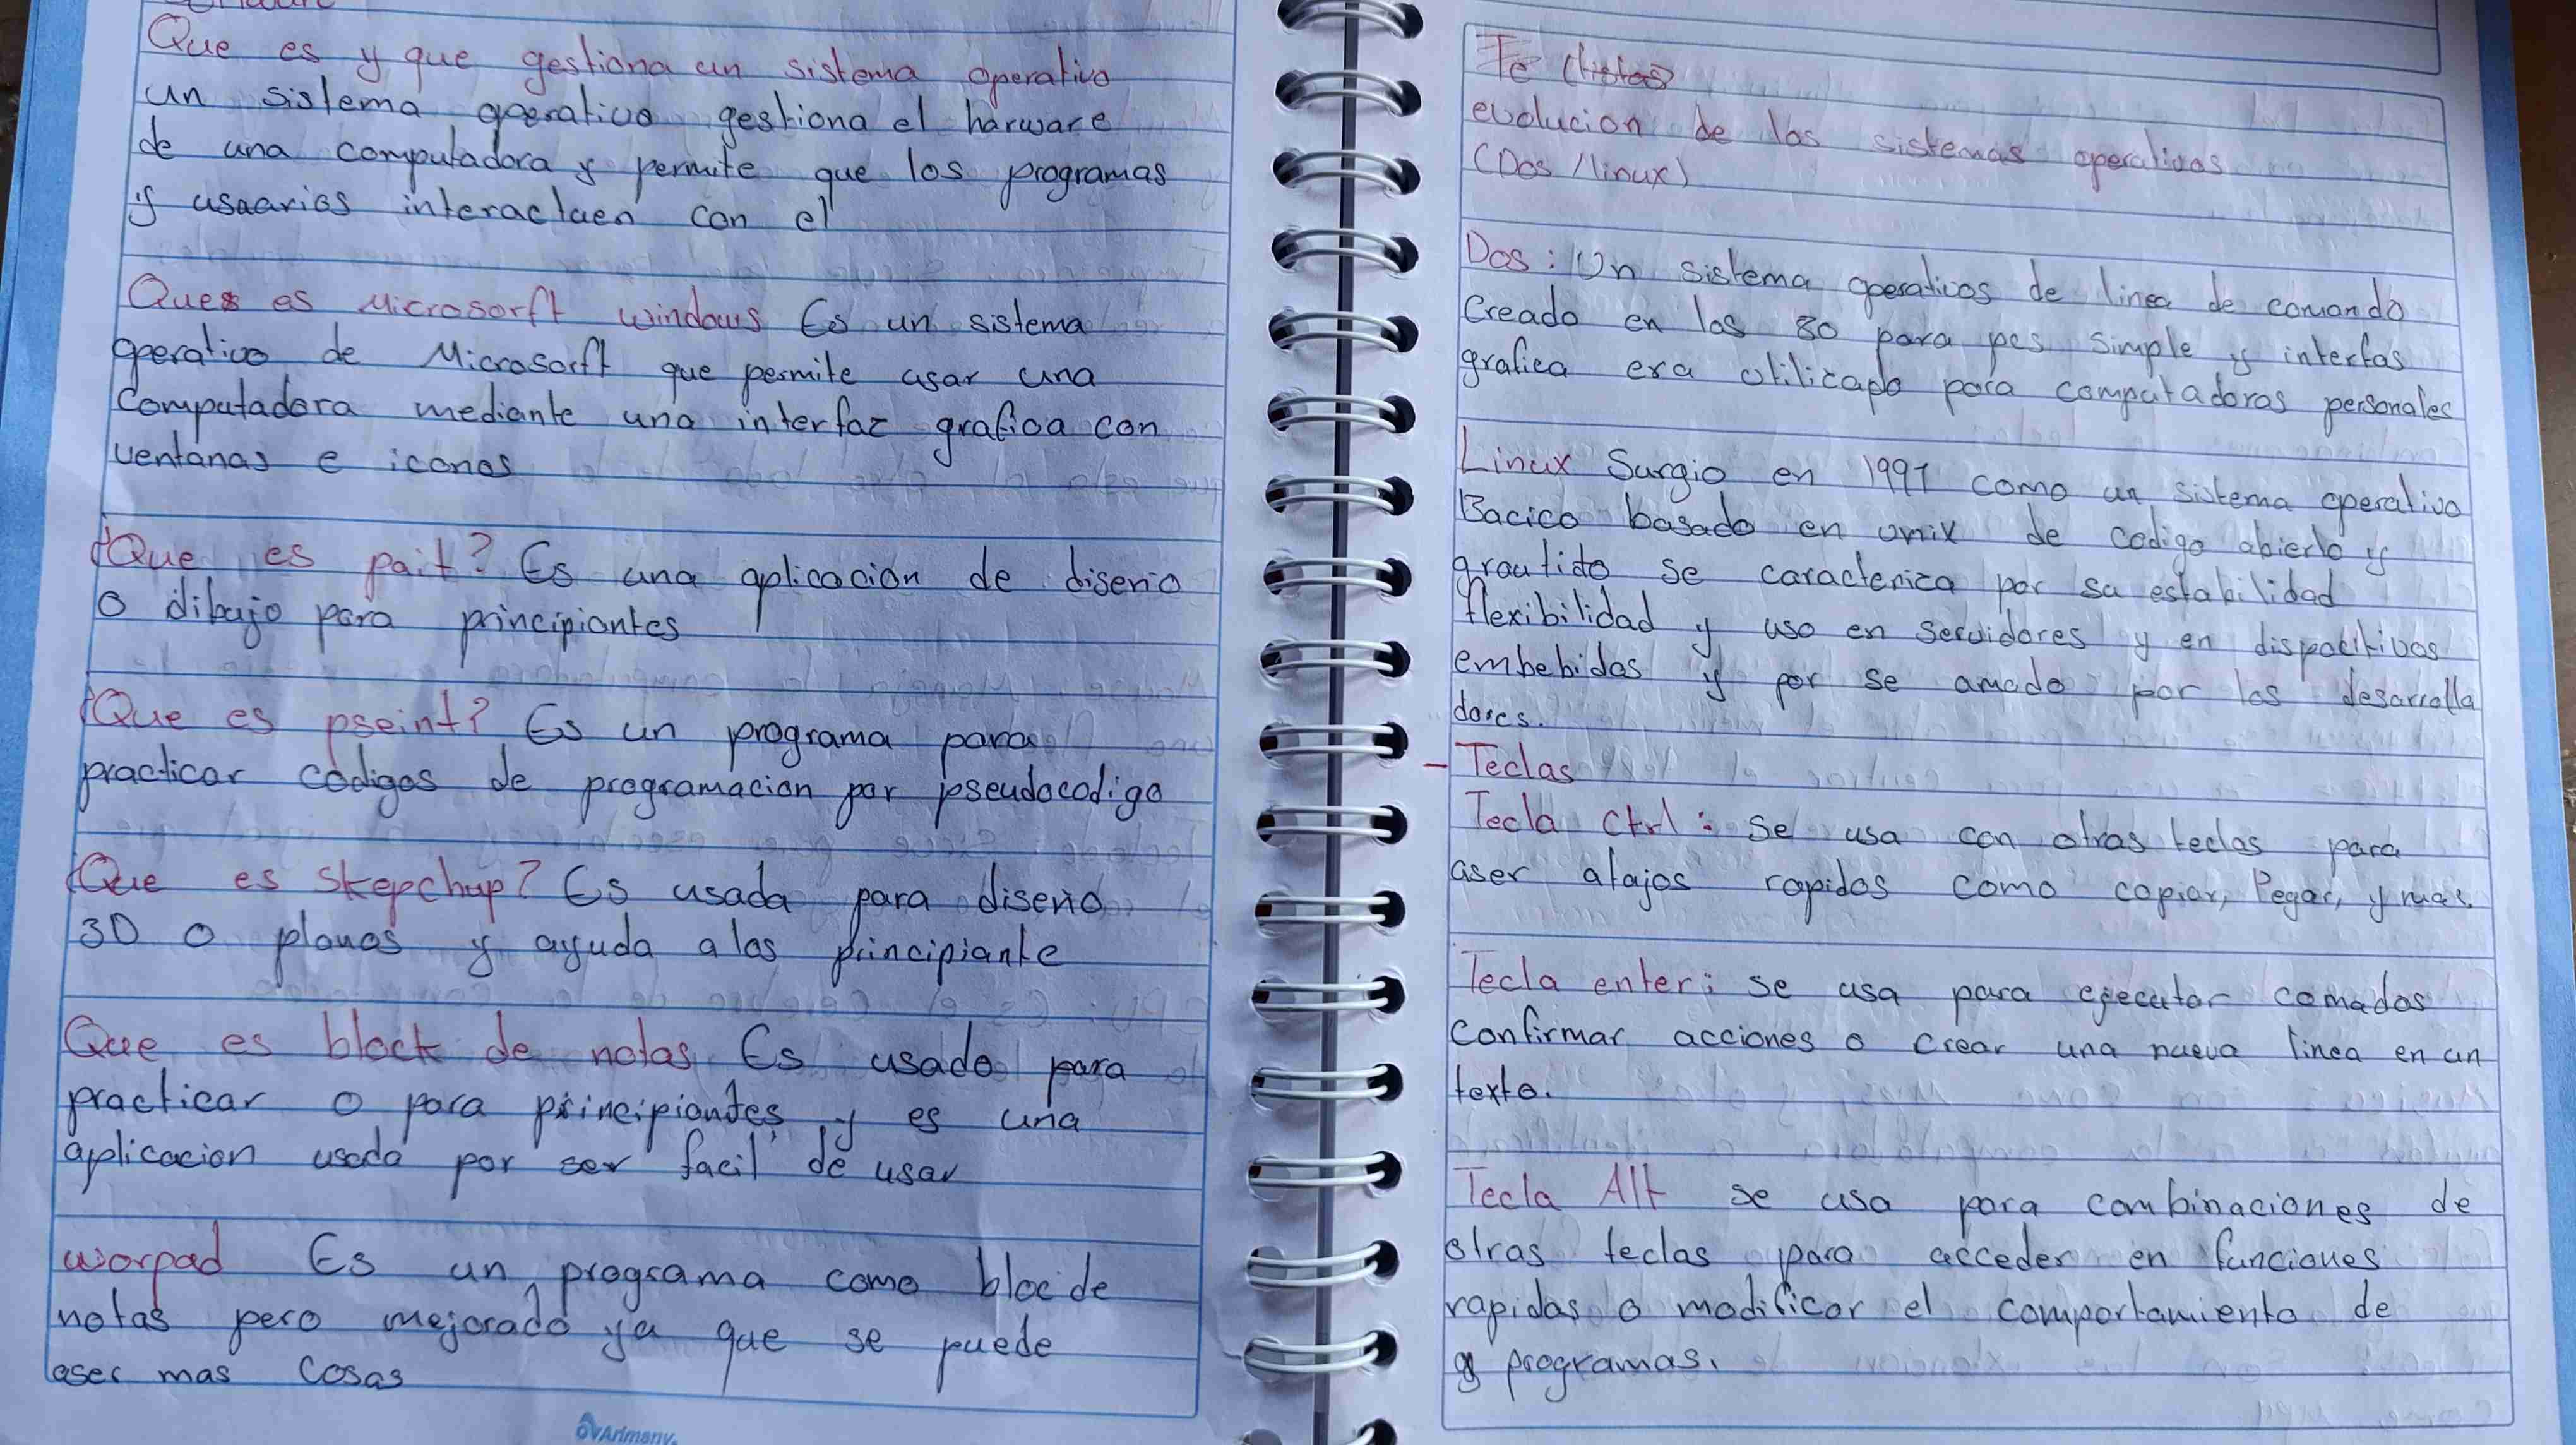 Que es y que gestiona un sistema operativo
un sistema operativo gestiona el harware
de una computadora y permite que los programas
y usuarios interactuen con el
Ques es Microsorft windows Es un sistema
operativo de Microsorft que permite usar una
Computadora mediante una interfaz grafica con
ventanas e iconos
¿Que es pait? Es una aplicacion de diseño
o dibujo para principiantes
¿Que es pseint? Es un programa para
practicar códigos de programacion por pseudocodigo
¿Que es skepchup? Es usada para diseño
3D o planos y ayuda a los principiante
Que es block de notas Es usado para
practicar o para principiantes y es una
aplicacion usada por ser facil de usar
worpad Es un programa como bloc de
notas pero mejorado ya que se puede
aser mas cosas
Arimany.
Te
evolucion de los sistemas operativos
(Dos /linux)
Dos: Un sistema operativos de linea de comando
Creado en los 80 para pcs simple y interfas
grafica era utilicado para computadoras personales
Linux Surgio en 1991 como un sistema operativo
Bacico basado en unix de codigo abierto y
grautido se caracteriza por su estabilidad
flexibilidad y uso en servidores y en dispocitivos
embebidos y por se amado por los desarrolla
dores.
- Teclas
Tecla ctrl: se usa con otras teclas para
aser atajos rapidos como copiar, Pegar, y mas.
Tecla enter: se usa para ejecutar comados
Confirmar acciones o crear una nueva linea en un
texto.
Tecla Alt se usa para combinaciones de
otras teclas para acceder en funciones
rapidas o modificar el comportamiento de
programas.